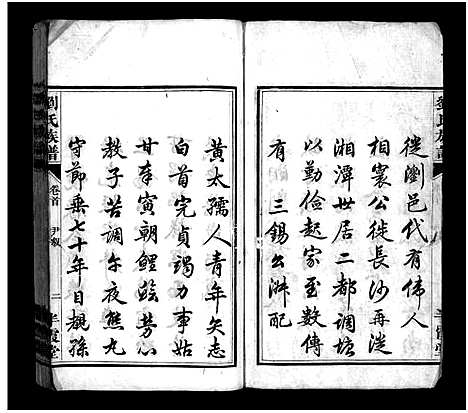 從瀏邑代有偉人
相襄公徙長沙再從
湘潭世居二都調塘
以勤儉起家至數傳
有三錫公淋配
黃太孺人青年矢志
白首完貞竭力事姑
甘奉寅朝鯉膾芳心
教子苦調午夜熊丸
守節垂七十年目親孫
劉氏族譜
卷首
尹敘
二